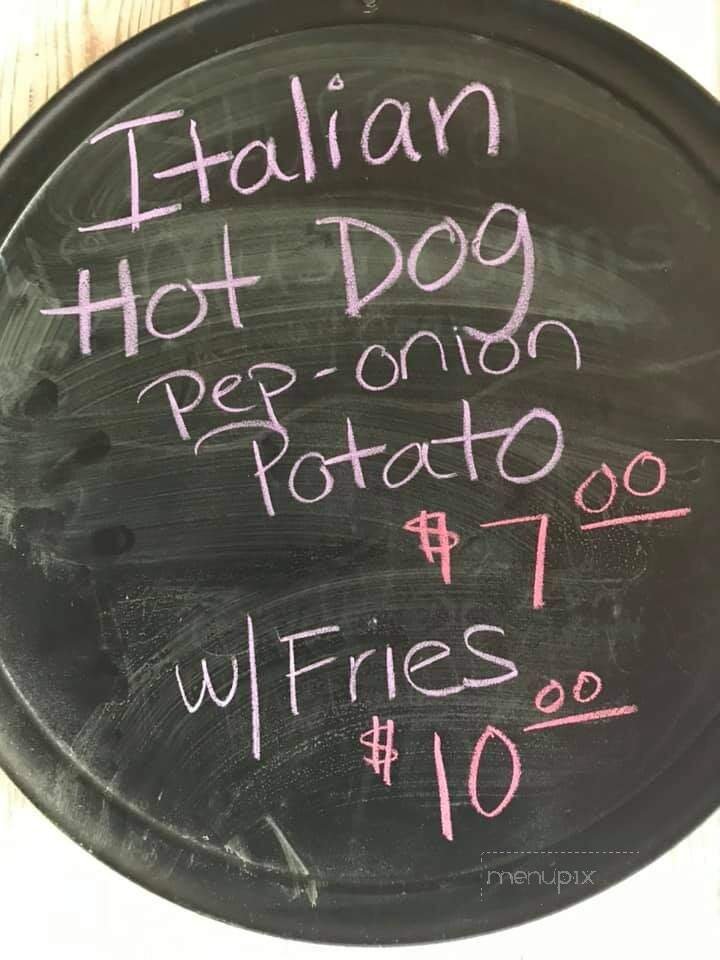 Italian
Hot Dog
Pep-onion
Potato
$7.00
w/Fries
$10.00
menupix